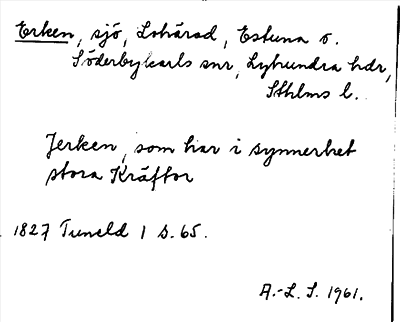 Erken, sjö, Lohärad, Estuna o.
Söderbykarls snr, Lyhundra hdr,
Sthlms l.
Jerken, som har i synnerhet
stora Kräftor
1827 Tuneld 1 s. 65.
A.-L. S. 1961.